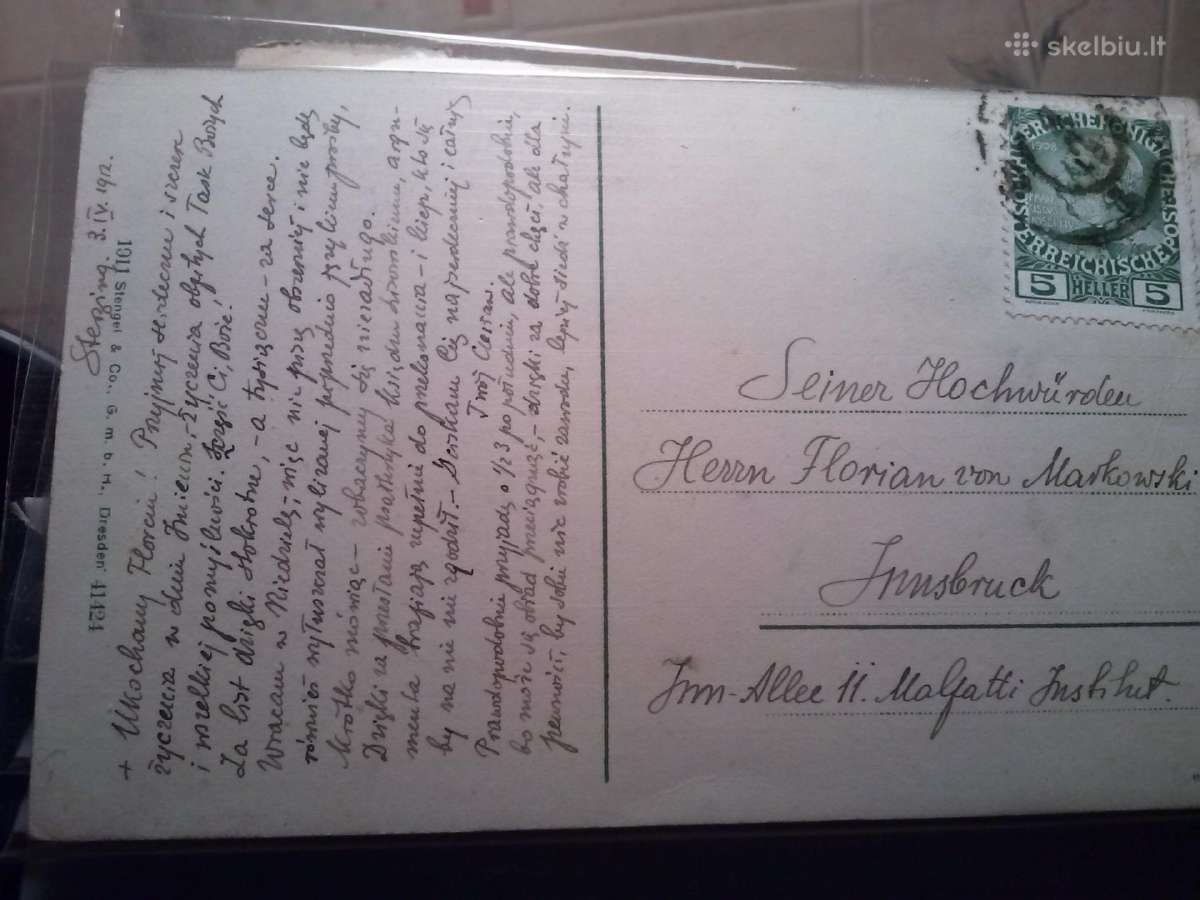 skelbiu.lt
1011 Stengel & Co., G.m.b.H., Dresden 41424
Sterzing. 3.IV.1912.
+ Ukochany Florciu! Przyjmij serdeczne i szczere
życzenia w dniu Imienin, życzenia obfitych Łask Bożych
i wszelkiej pomyślności. Szczęść Ci, Boże,
Za list dzięki stokrotne, - a tysiączne - za serce.
Wracam w Niedzielę, więc nie piszę obszerniej i nie będę
również wyłuszczał wyliczonej poprzednio przyczyny,
krótko mówiąc - zobaczymy się niezadługo.
Dzięki za przesłanie
trafiają zupełnie do przekonania - i kiep, kto się
by na nie nie zgodził. - Ściskam Cię najserdeczniej i całuję
Twój
Prawdopodobnie przyjadę o 1/2 3 po południu, ale prawdopodobnie,
bo może się obiad przeciągnąć, - dzięki za dobre chęci, ale dla
pewności, by sobie nie zrobić zawodu, lepiej siedź w chałupie.
1908
KAISERLICHE KÖNIGLICHE
ÖSTERREICHISCHE POST
5 HELLER 5
Seiner Hochwürden
Herrn Florian von Markowski
Innsbruck
Inn-Allee 11. Malfatti Institut.